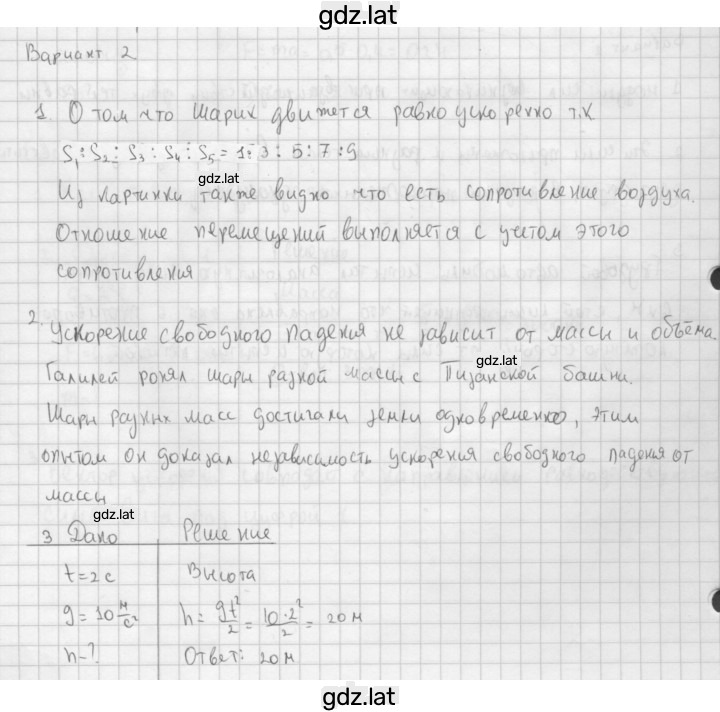 gdz.lat
Вариант 2
1. О том что шарик движется равноускоренно т.к
S₁:S₂:S₃:S₄:S₅=1:3:5:7:9
gdz.lat
Из картинки также видно что есть сопротивление воздуха.
Отношение перемещений выполняется с учетом этого
сопротивления
2. Ускорение свободного падения не зависит от массы и объёма.
gdz.lat
Галилей ронял шары разной массы с Пизанской башни.
Шары разных масс достигали земли одновременно, этим
опытом он доказал независимость ускорения свободного падения от
массы
gdz.lat
3 Дано Решение
t=2c Высота
g=10 м/с² h= gt²/2 = 10·2²/2 = 20м
h-? Ответ: 20м
gdz.lat